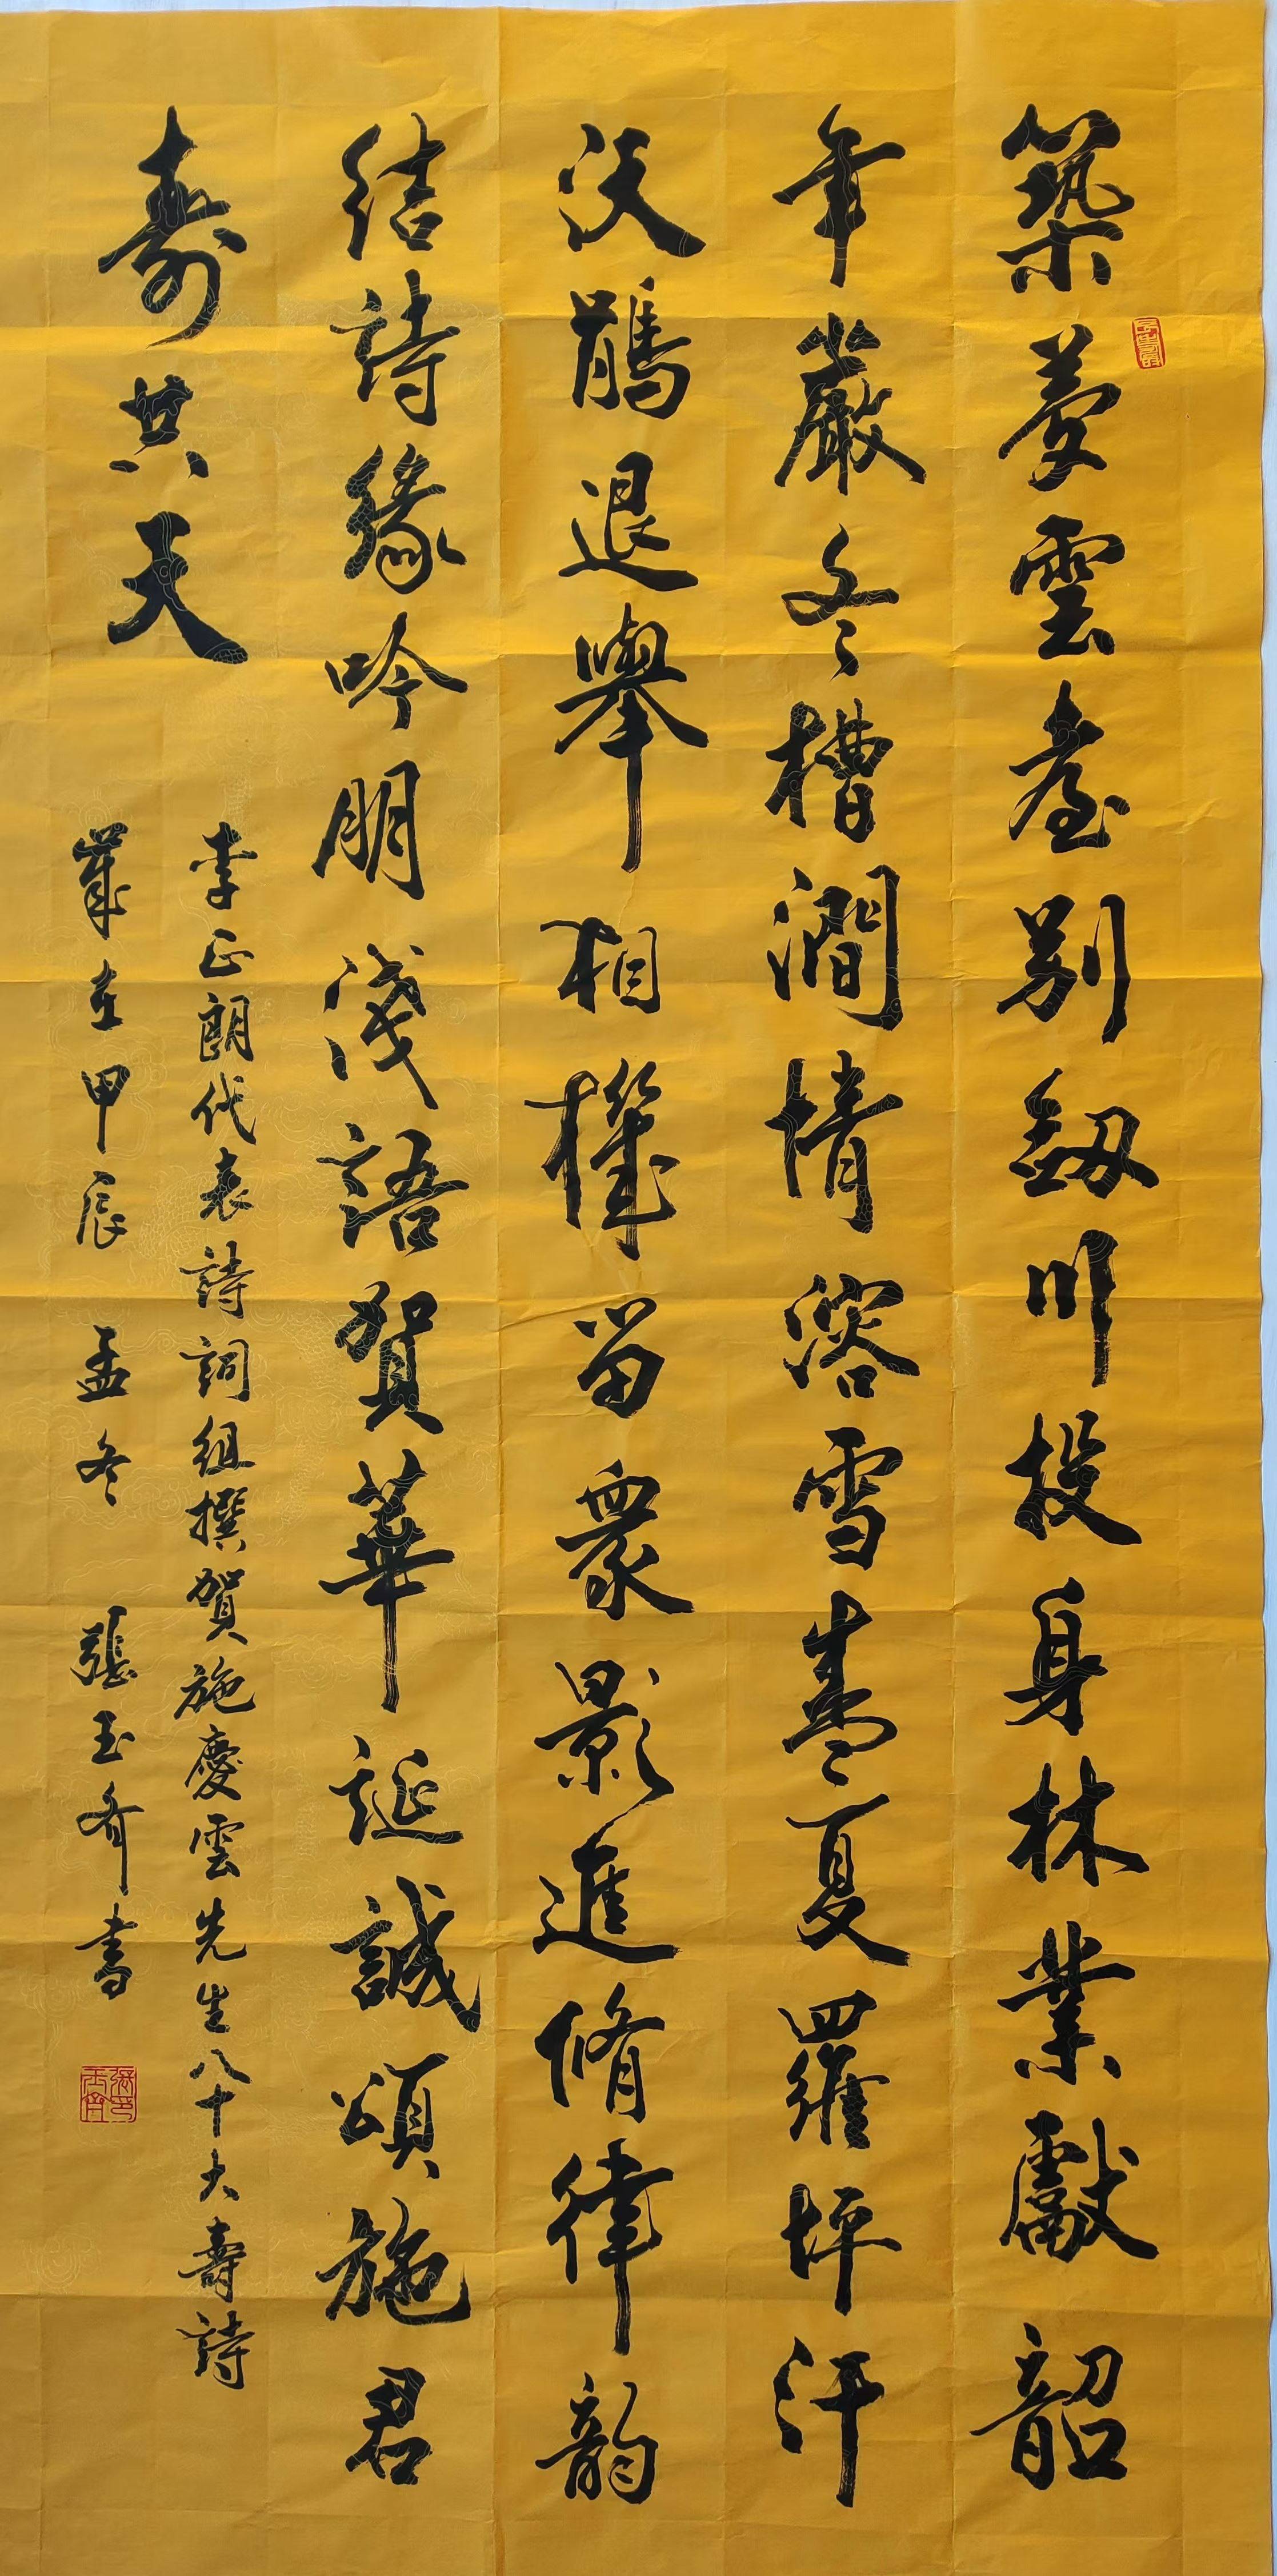 築夢雲臺別劔川投身林業獻韶
年嚴冬槽澗情溶雪盛夏羅坪汗
沃鵑退舉相機留衆影進脩律韵
結詩緣吟朋淺語賀華誕誠頌施君
壽共天
李正朗代表詩詞組撰賀施慶雲先生八十大壽詩
歲在甲辰 孟冬 張玉 書